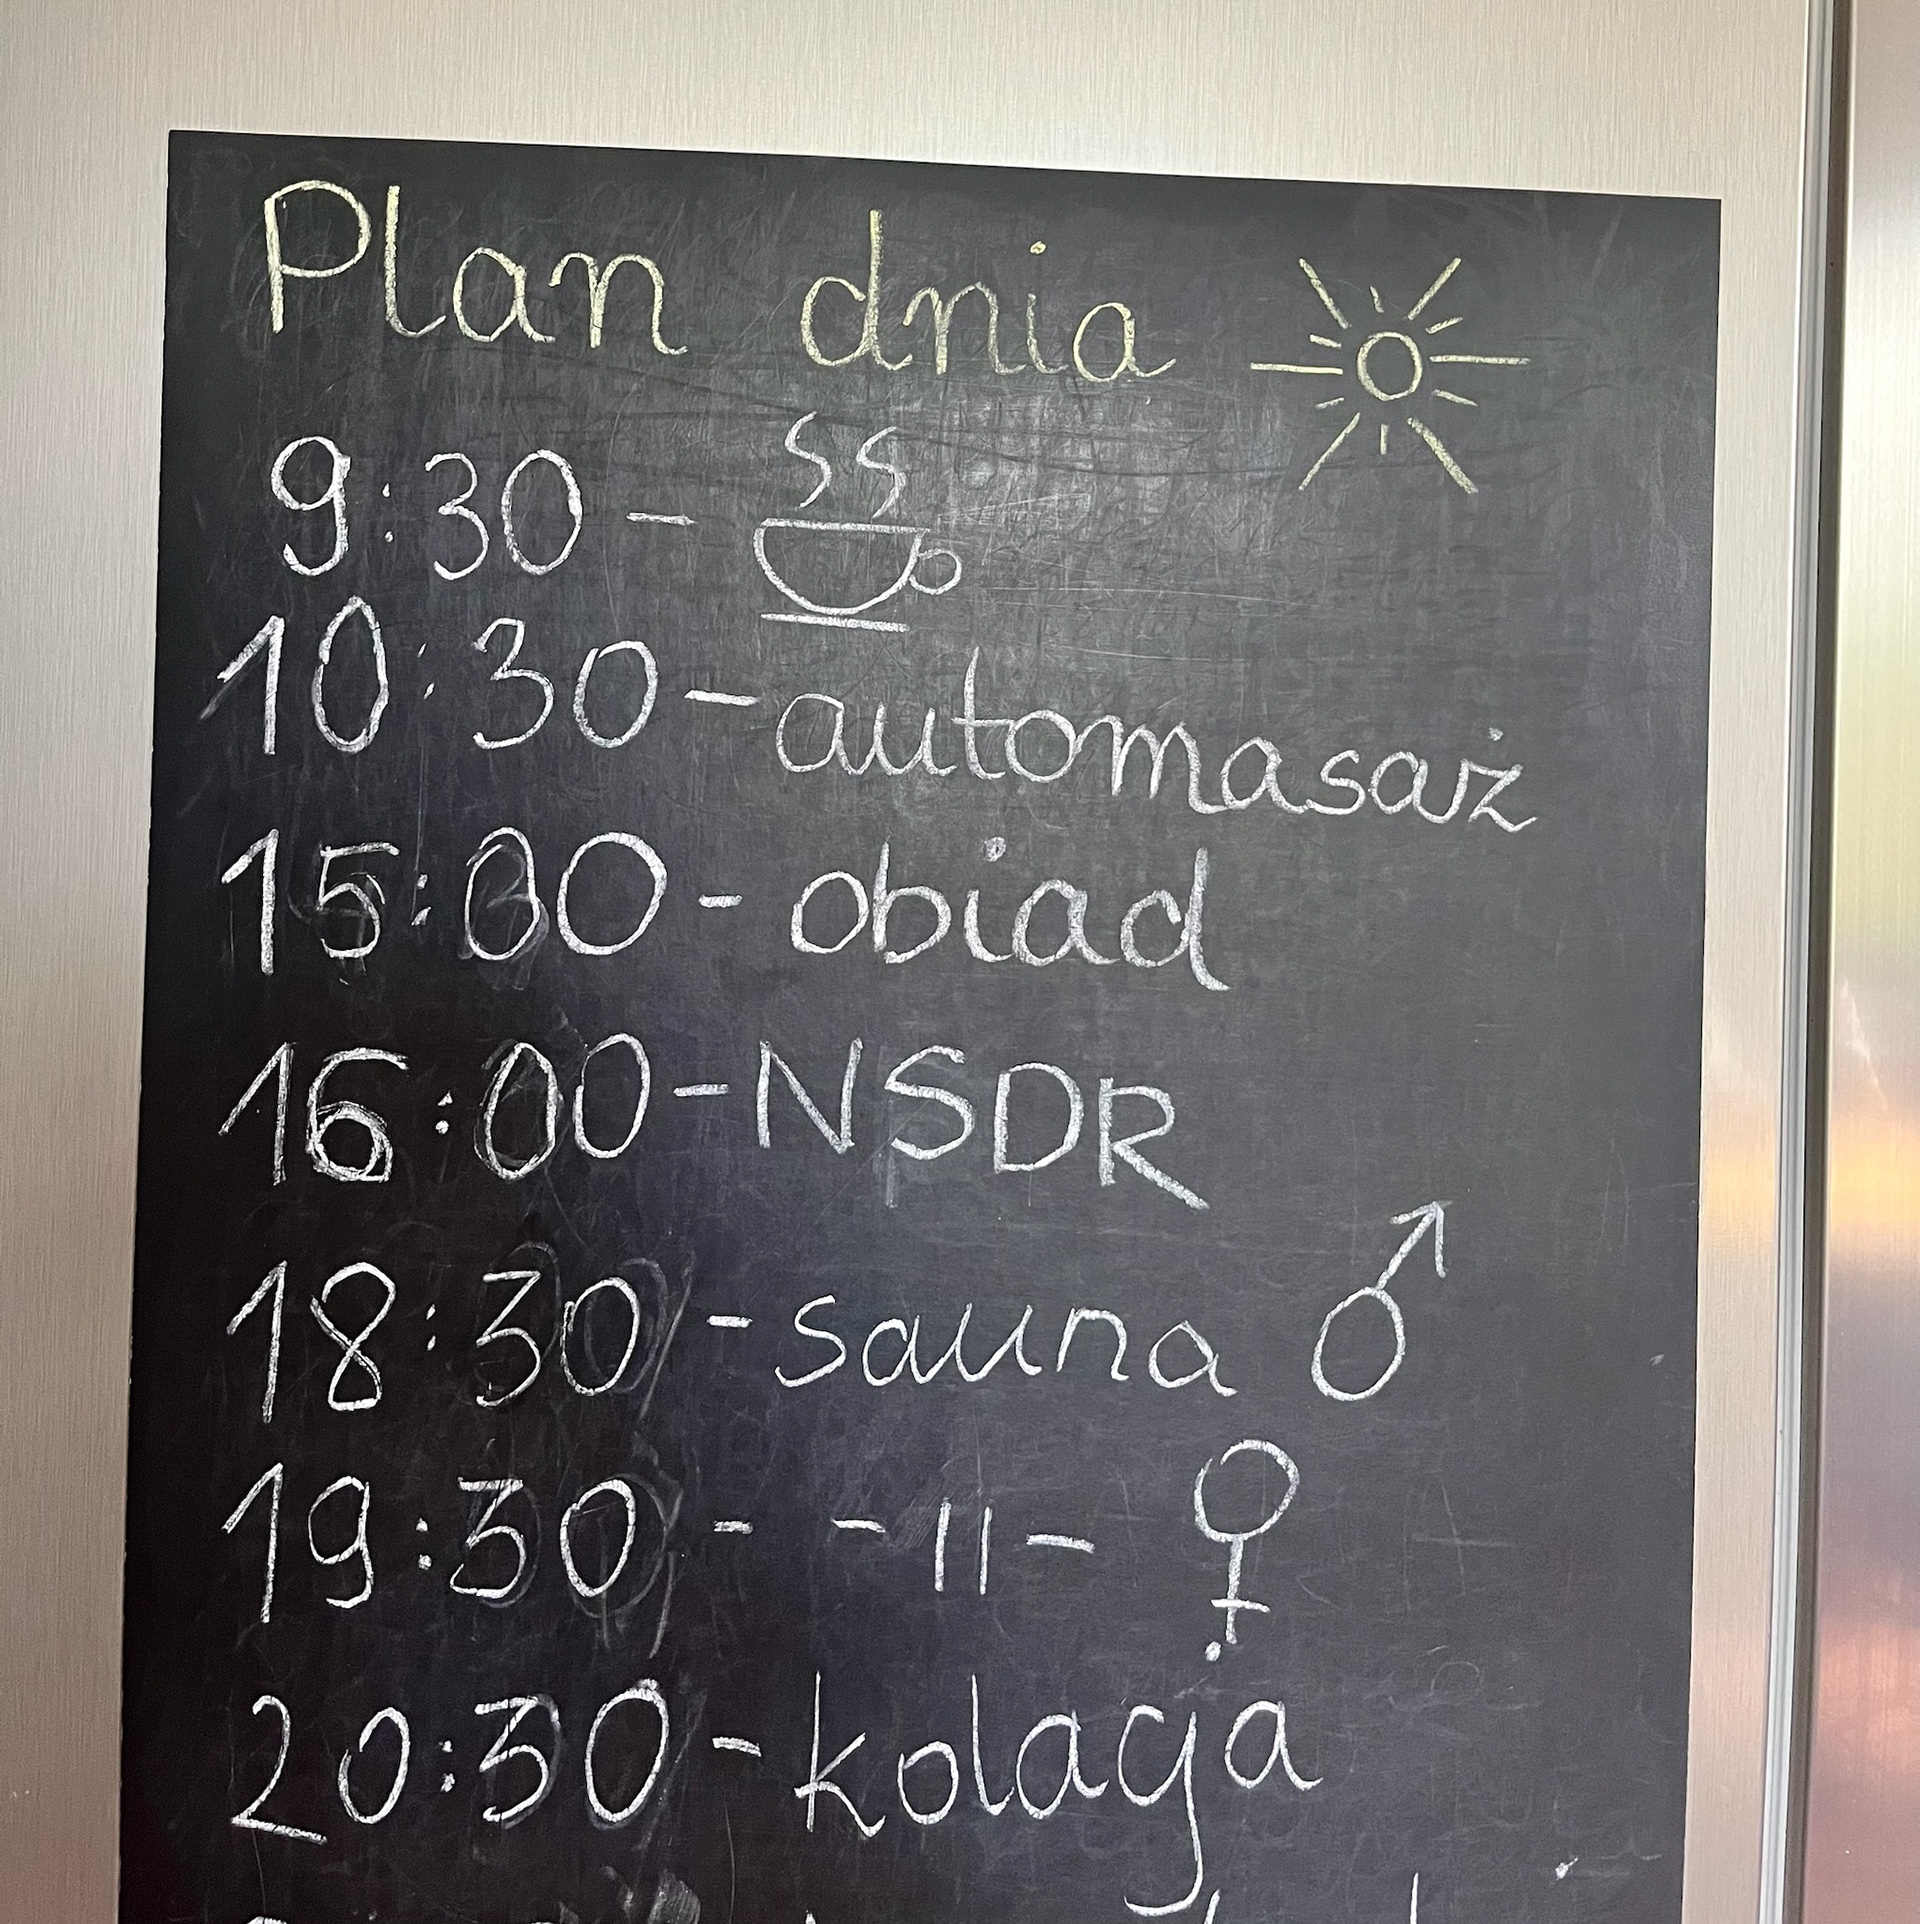 Plan dnia
9:30 -
10:30 - automasaż
15:00 - obiad
16:00 - NSDR
18:30 - sauna ♂
19:30 - -11- ♀
20:30 - kolacja